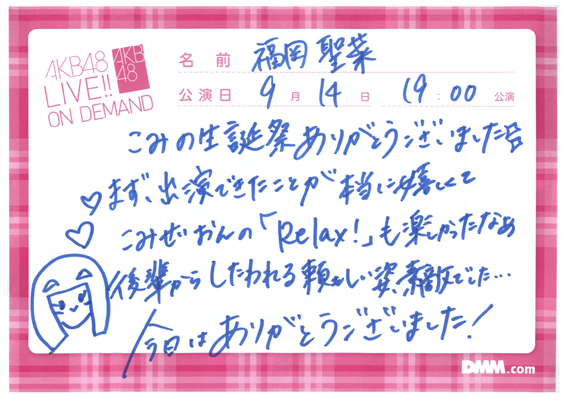 AKB48
LIVE!!
ON DEMAND
AKB
48
名前 福岡 聖菜
公演日 9月14日 19:00公演
こみの生誕祭ありがとうございました
まず、出演できたことが本当に嬉しくて
こみぜおんの「Relax!」も楽しかったなぁ
後輩からしたわれる頼もしい姿、素敵でした…
今日はありがとうございました!
DMM.com